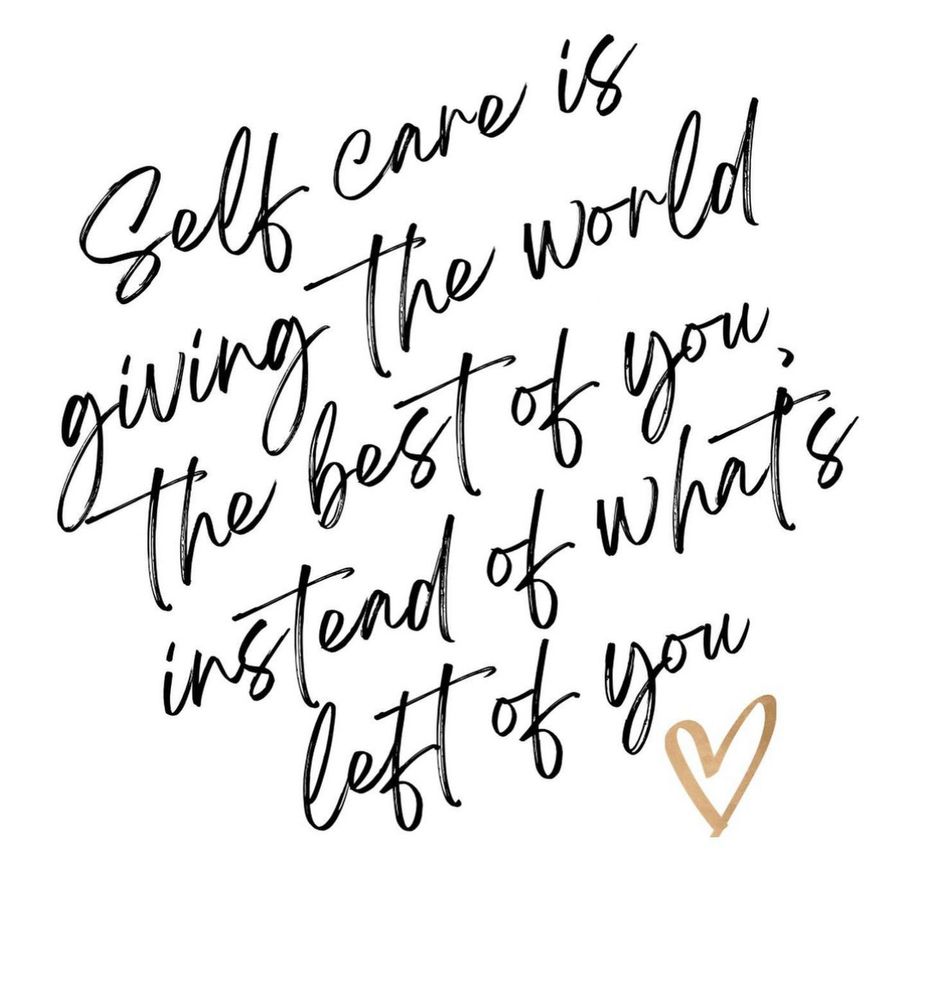 Self care is
giving the world
the best of you,
instead of what's
left of you